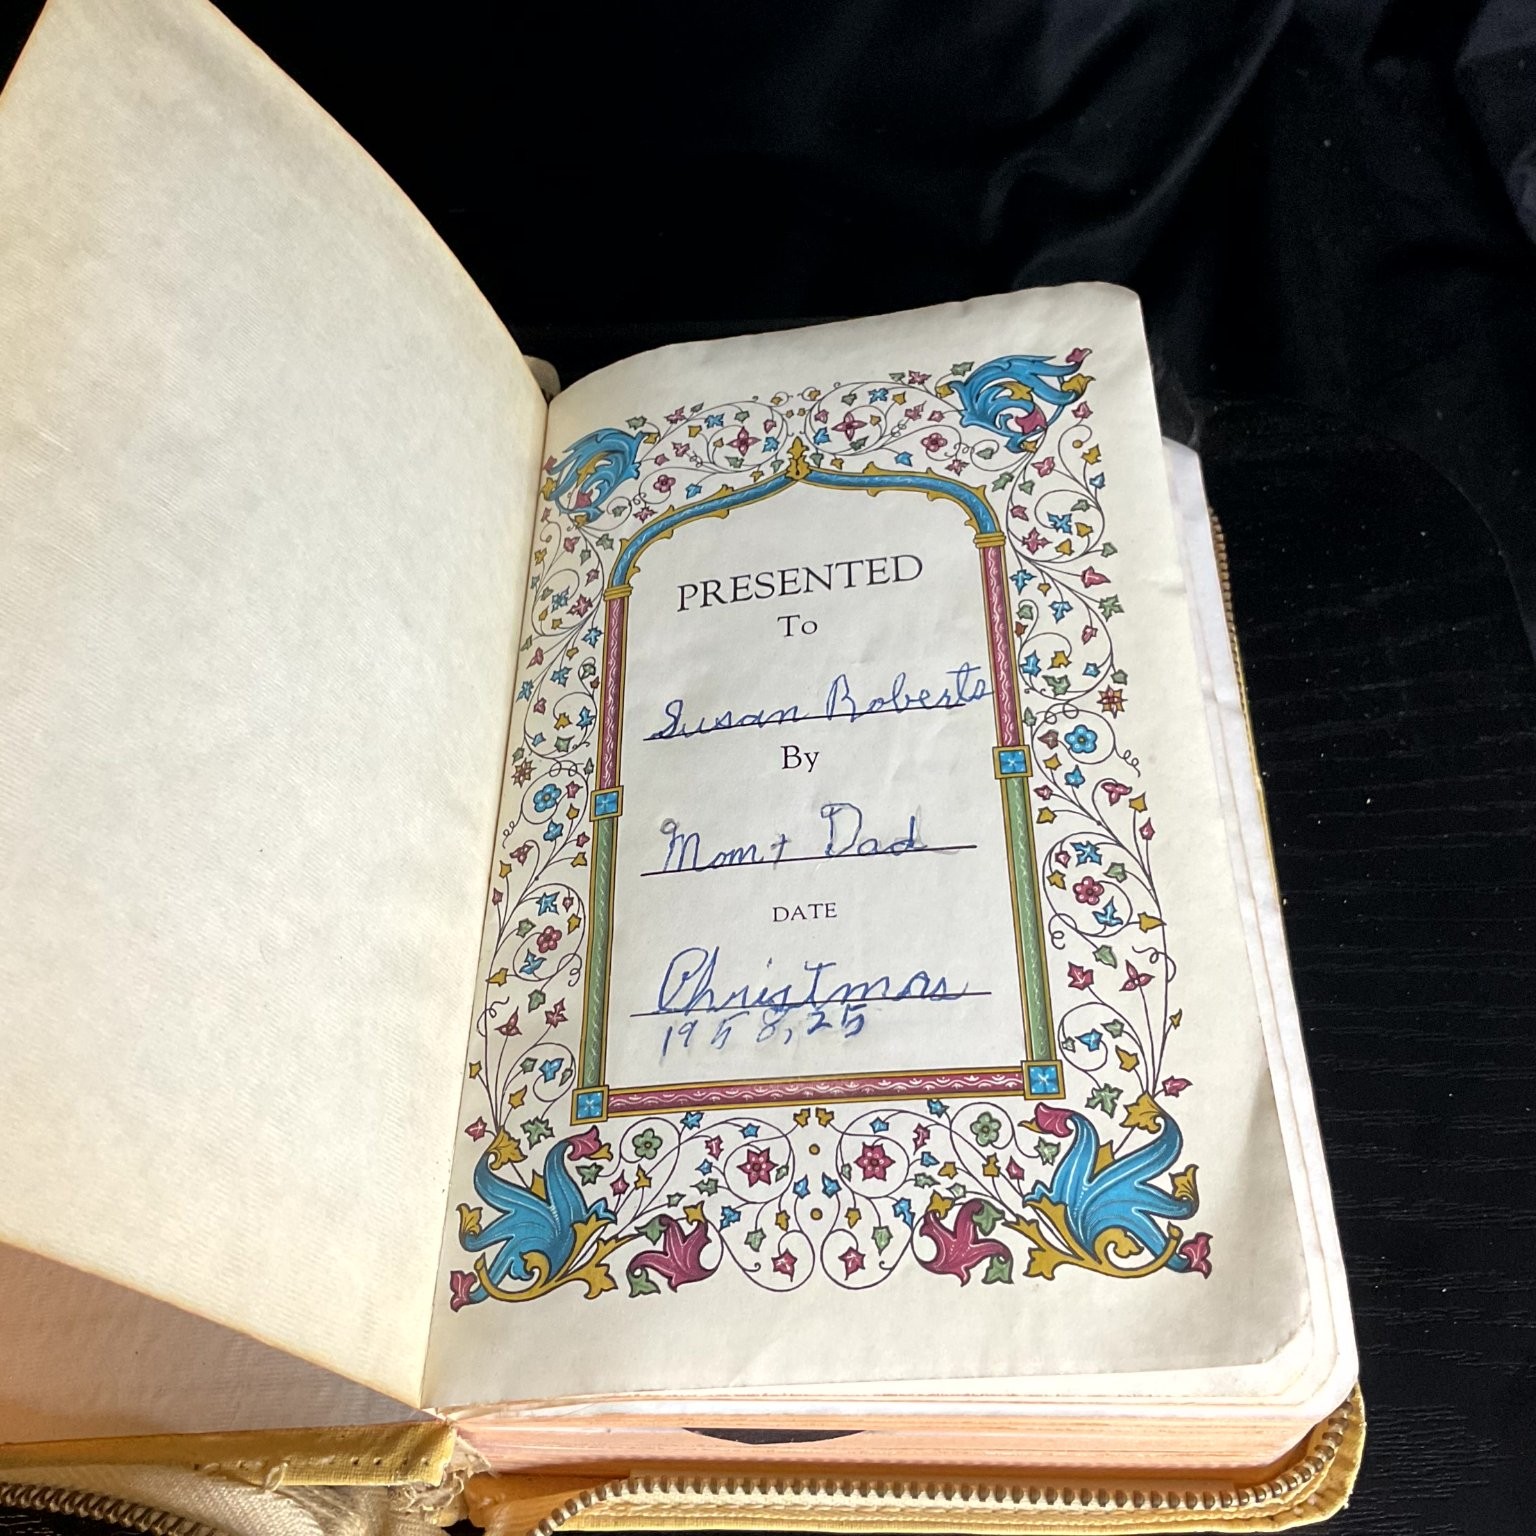 PRESENTED
To
Susan Roberts
By
Mom + Dad
DATE
Christmas
1958, 25